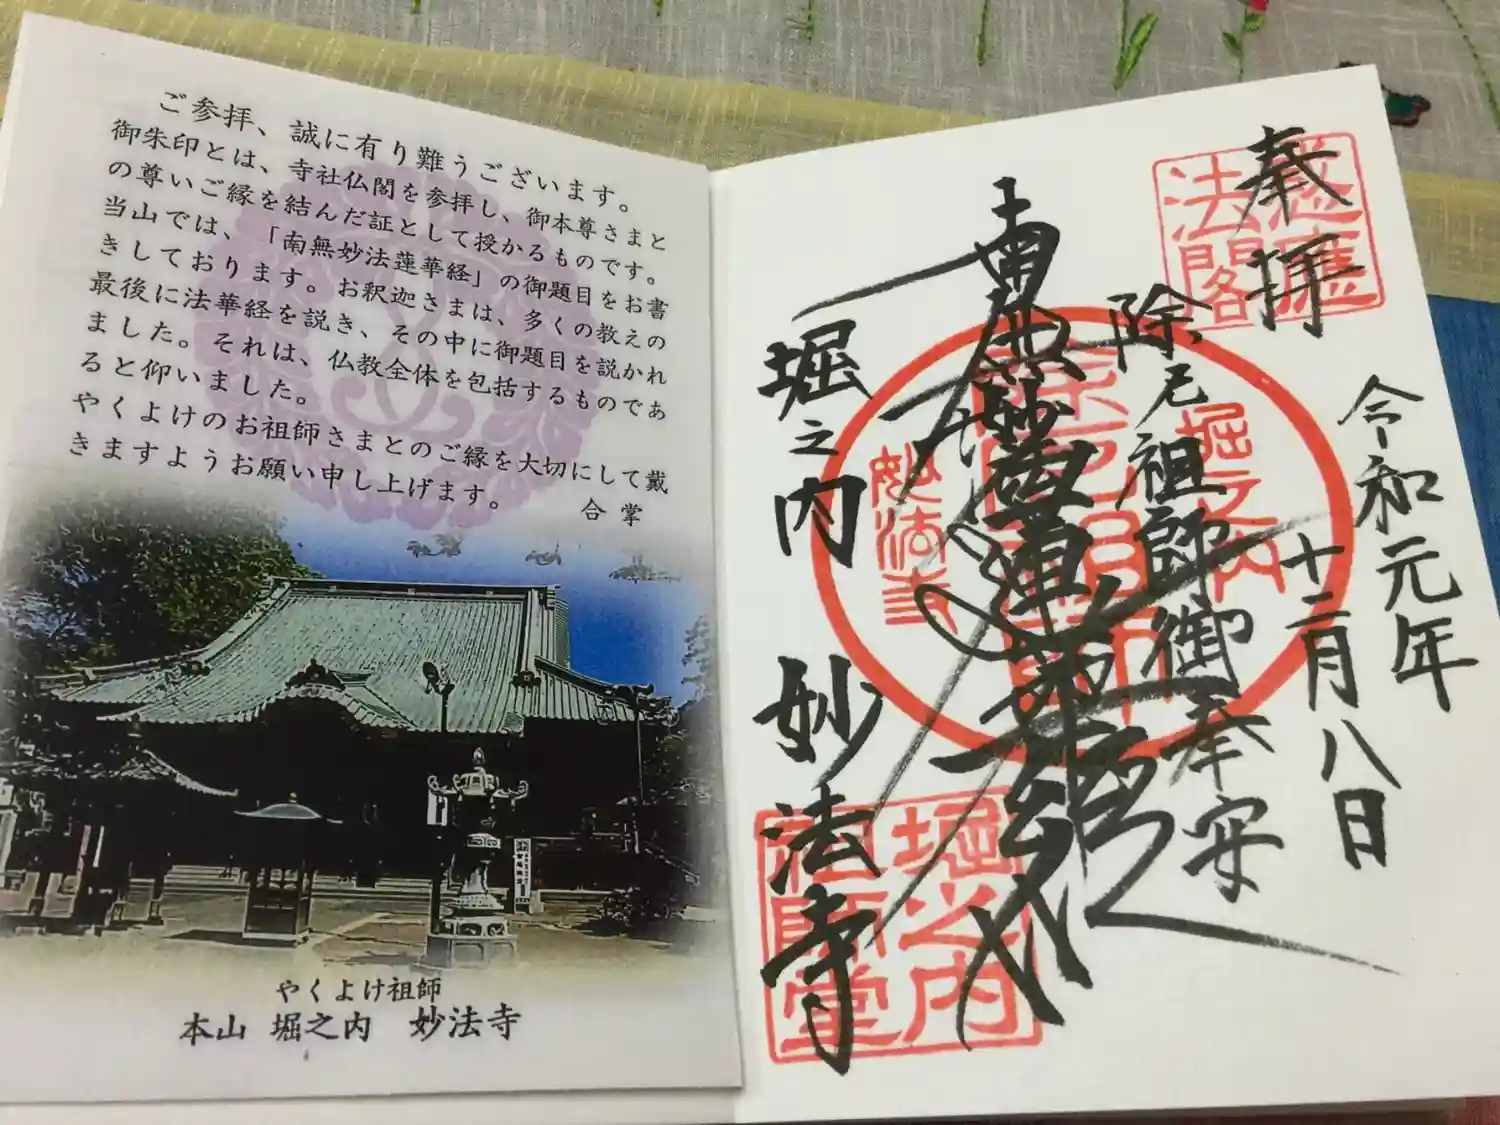 ご参拝、誠に有り難うございます。
御朱印とは、寺社仏閣を参拝し、御本尊さまと
の尊いご縁を結んだ証として授かるものです。
当山では、「南無妙法蓮華経」の御題目をお書
きしております。お釈迦さまは、多くの教えの
最後に法華経を説き、その中に御題目を説かれ
ました。それは、仏教全体を包括するものであ
ると仰いました。
やくよけのお祖師さまとのご縁を大切にして戴
きますようお願い申し上げます。
合掌
やくよけ祖師
本山 堀之内 妙法寺
奉拝
令和元年
十二月八日
除厄祖師御奉安
南無妙法蓮華経
堀之内
妙法寺
感應
法閣
堀之内
妙法寺
堀之内
祖師堂